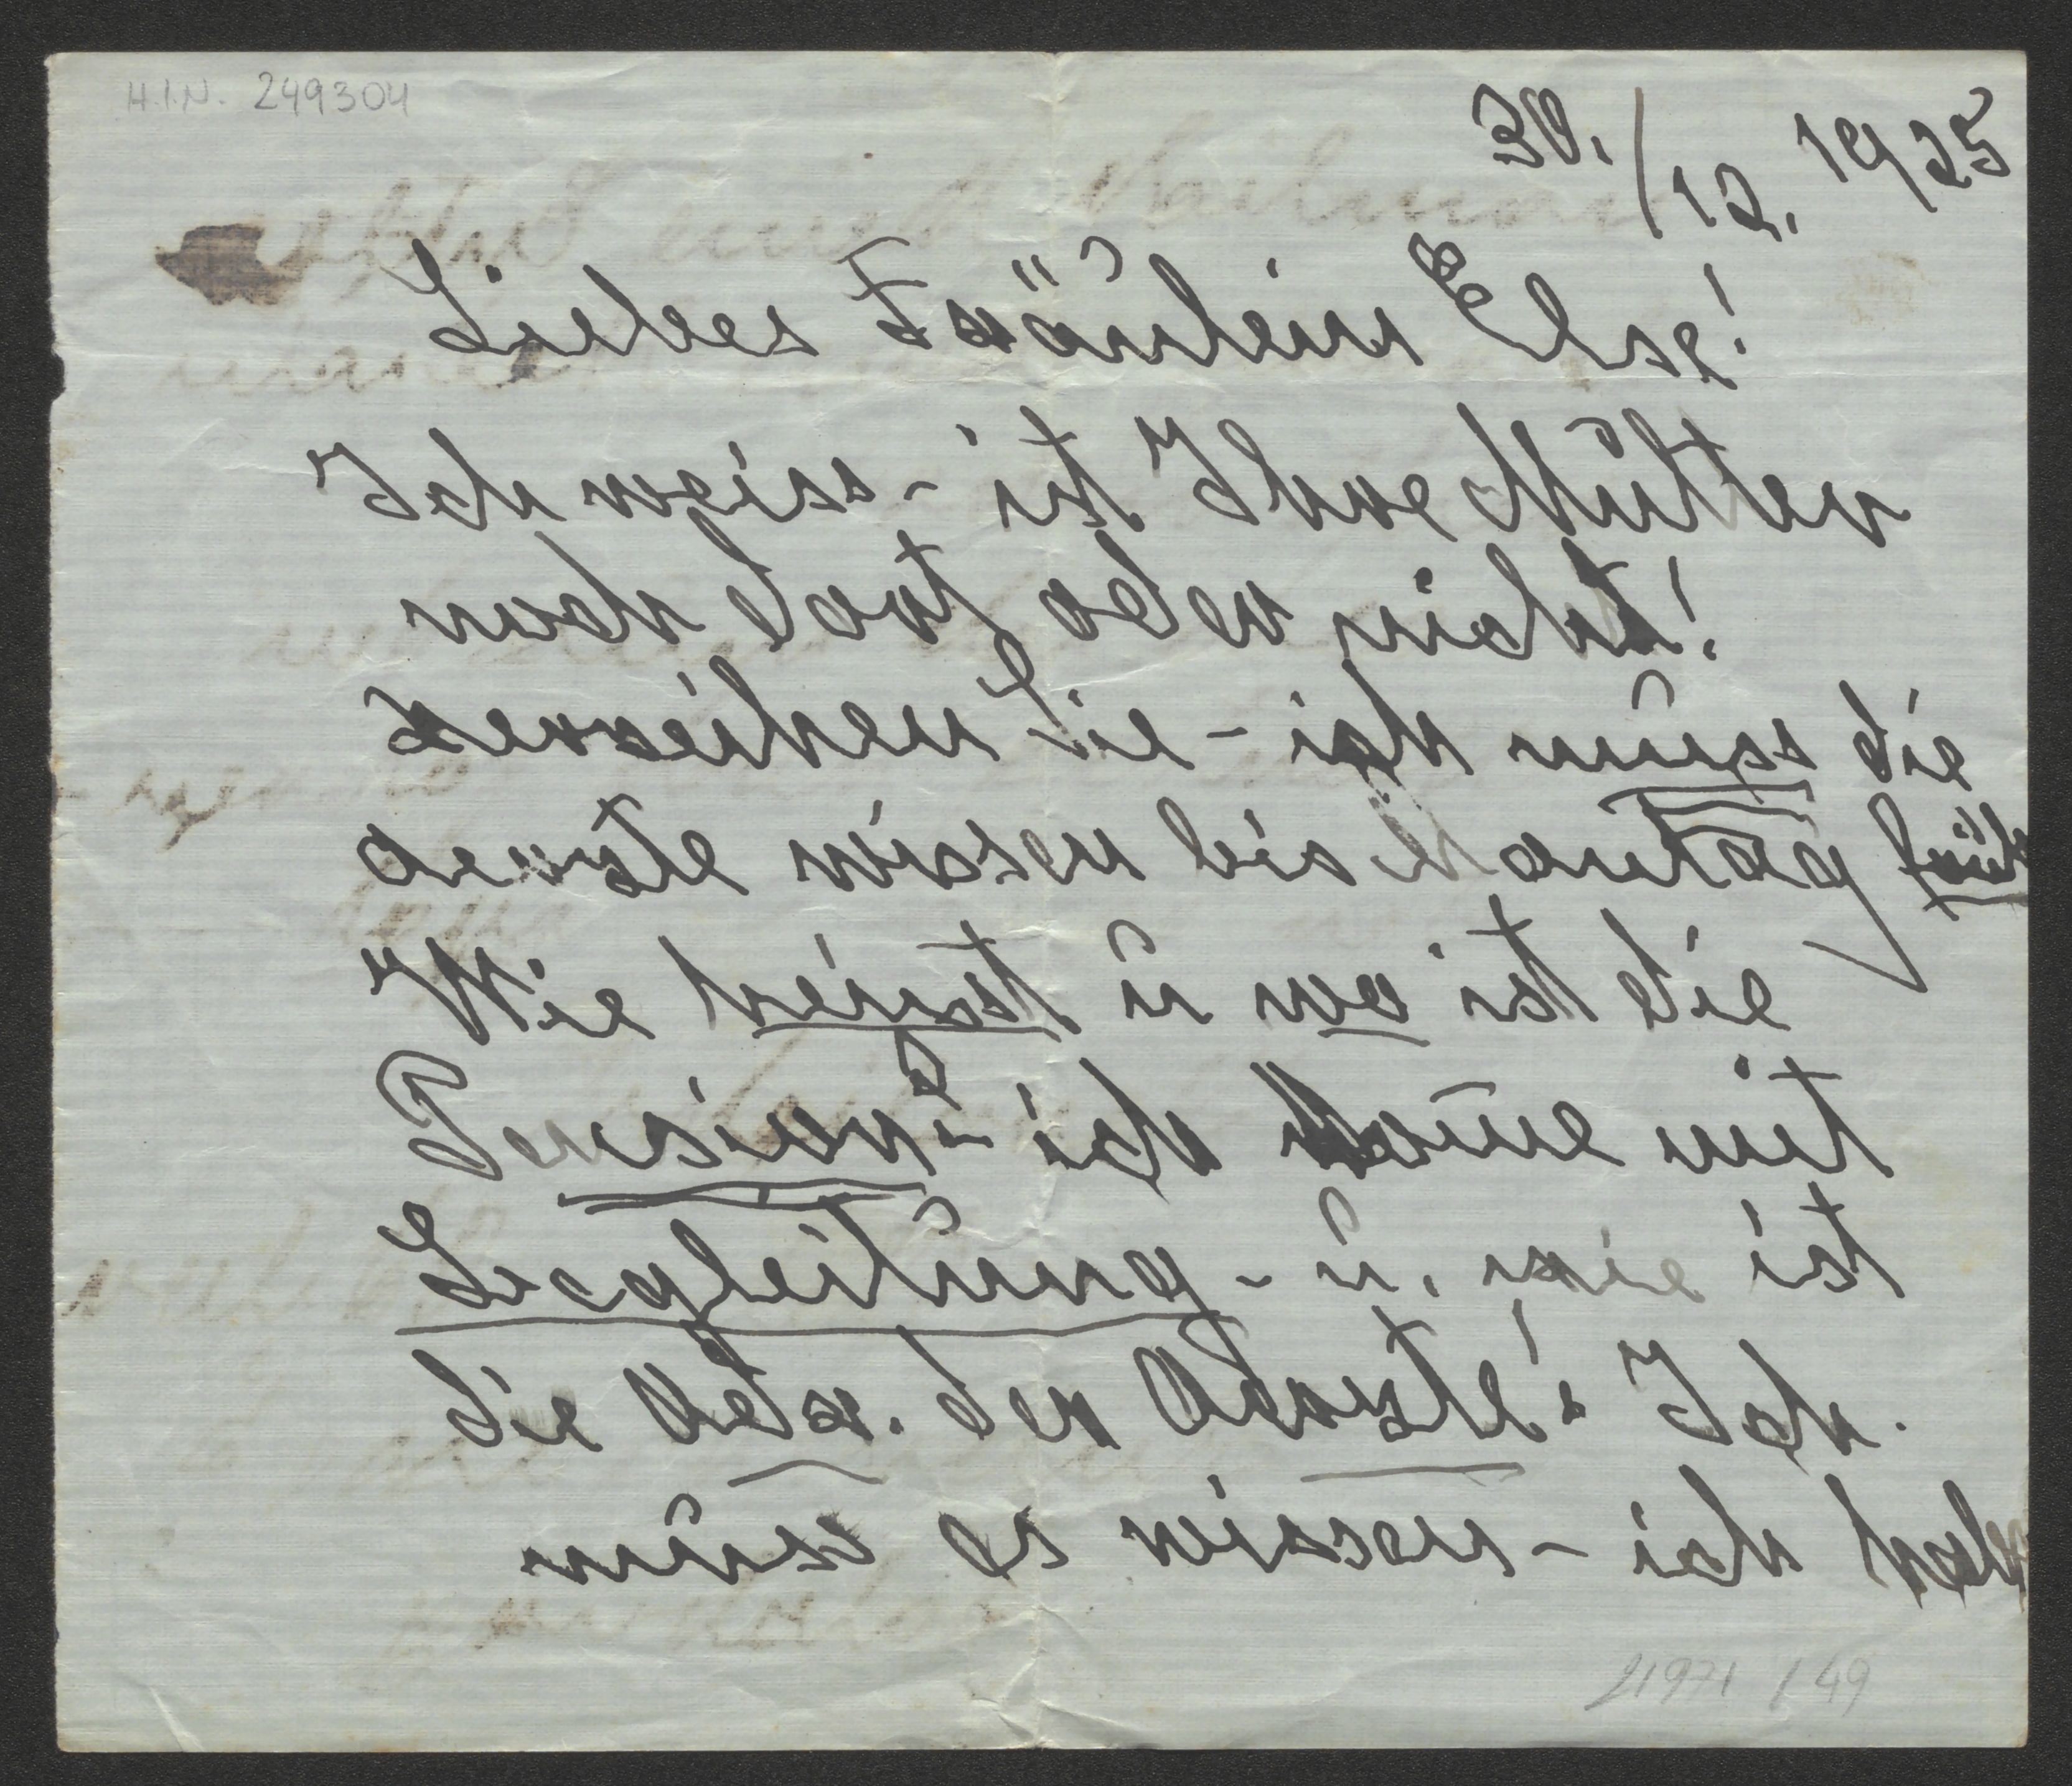 H.I.N. 249304
30./12. 1925
Liebes Fräulein Else!
Ich weiss - ist Ihre Mutter
noch dort oder nicht!
Verzeihen Sie - ich muss die
aerzte wissen bis Montag früh
Wie heisst u wo ist die
Pension? - ich kom̄e mit
Begleitung - u. wie ist
die Adr. der Aerzte! Ich
muss es wissen - ich habe
21971 / 49